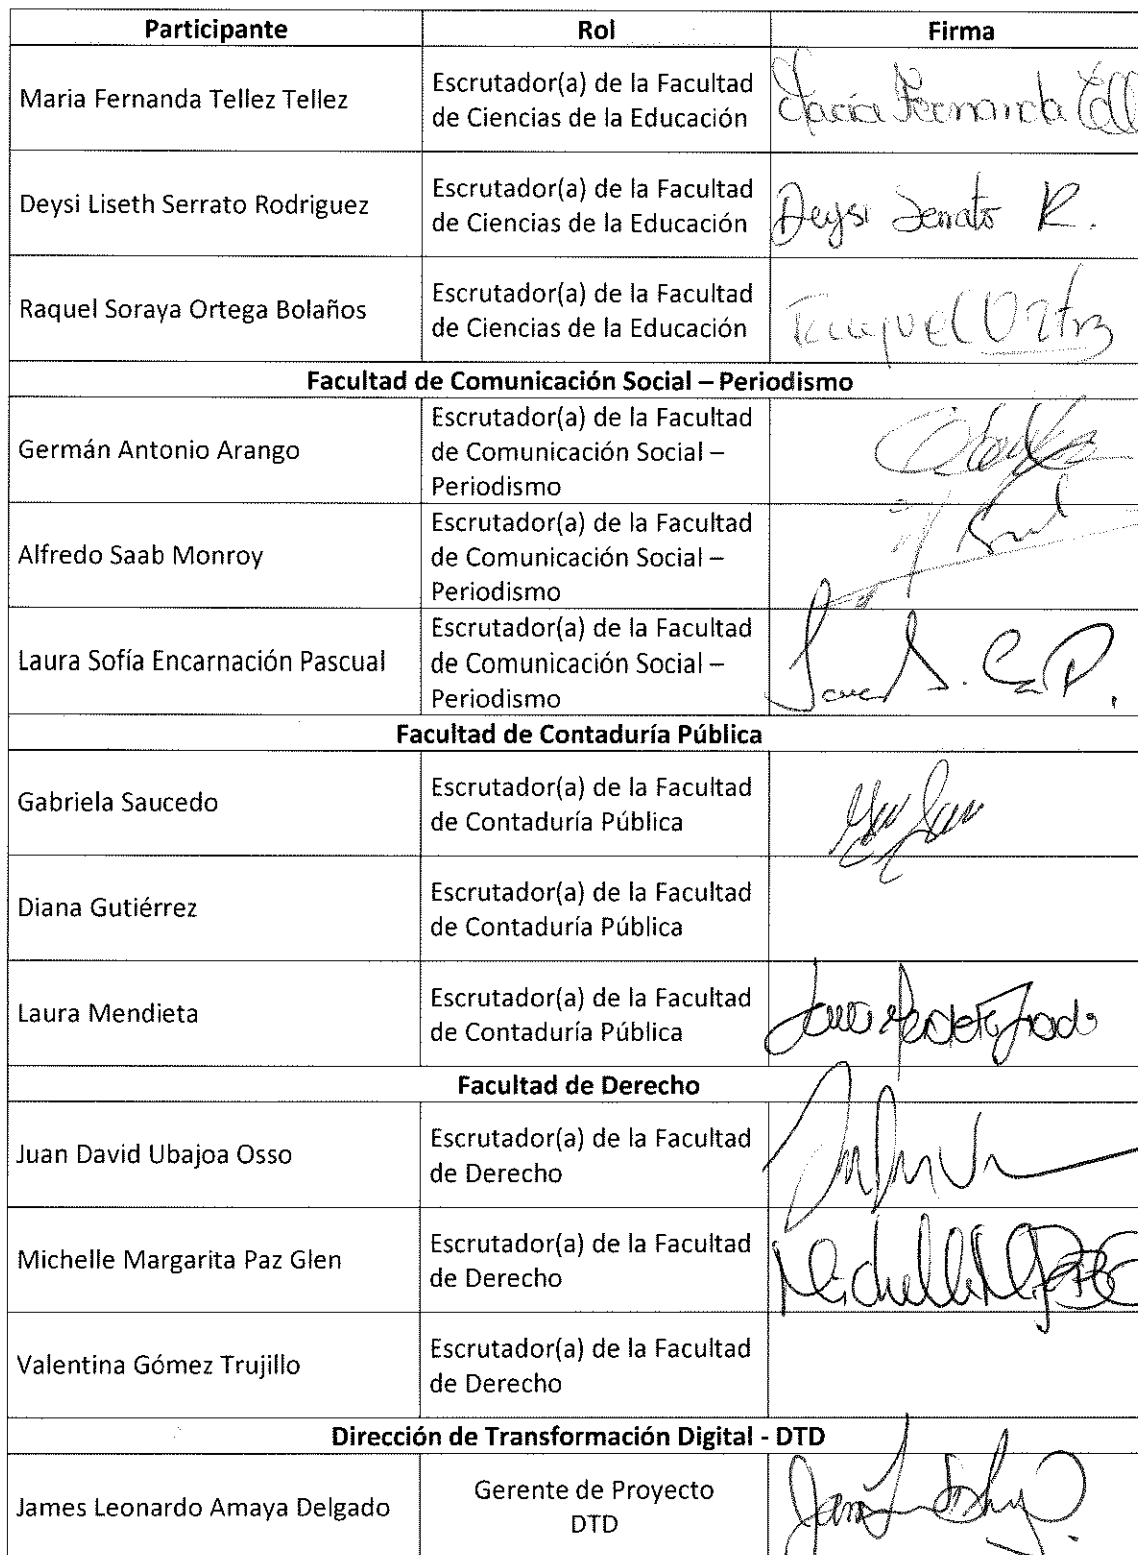 Participante Rol Firma
Maria Fernanda Tellez Tellez
Escrutador(a) de la Facultad
de Ciencias de la Educación
Maria Fernanda Tell
Deysi Liseth Serrato Rodriguez
Escrutador(a) de la Facultad
de Ciencias de la Educación
Deysi Serrato R.
Raquel Soraya Ortega Bolaños
Escrutador(a) de la Facultad
de Ciencias de la Educación
Raquel
Facultad de Comunicación Social – Periodismo
Germán Antonio Arango
Escrutador(a) de la Facultad
de Comunicación Social –
Periodismo
Alfredo Saab Monroy
Escrutador(a) de la Facultad
de Comunicación Social –
Periodismo
Laura Sofía Encarnación Pascual
Escrutador(a) de la Facultad
de Comunicación Social –
Periodismo
Facultad de Contaduría Pública
Gabriela Saucedo
Escrutador(a) de la Facultad
de Contaduría Pública
Diana Gutiérrez
Escrutador(a) de la Facultad
de Contaduría Pública
Laura Mendieta
Escrutador(a) de la Facultad
de Contaduría Pública
Facultad de Derecho
Juan David Ubajoa Osso
Escrutador(a) de la Facultad
de Derecho
Michelle Margarita Paz Glen
Escrutador(a) de la Facultad
de Derecho
Michelle
Valentina Gómez Trujillo
Escrutador(a) de la Facultad
de Derecho
Dirección de Transformación Digital - DTD
James Leonardo Amaya Delgado
Gerente de Proyecto
DTD